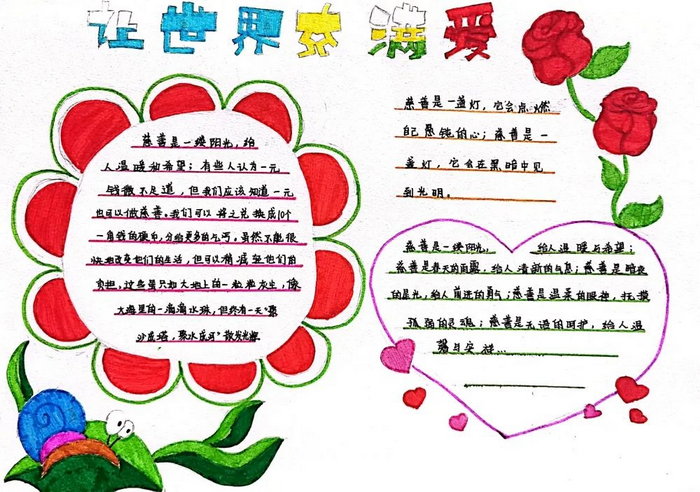 让世界充满爱
慈善是一缕阳光，给
人温暖和希望；有些人认为一元
钱微不足道，但我们应该知道一元
也可以做慈善。我们可以将之兑换成10个
一角钱的硬币，分给更多的乞丐，虽然不能很
快地改变他们的生活，但可以稍减轻他们的
负担，这些虽只如大地上的一粒粒灰尘，像
大海里的一滴滴水珠，但终有一天“聚
沙成塔，聚水成河”散发光辉
慈善是一盏灯，它会点燃
自己愚钝的心；慈善是一
盏灯，它会在黑暗中见
到光明。
慈善是一缕阳光，给人温暖与希望；
慈善是春天的雨露，给人清新的气息；慈善是暗夜
的星光，给人前进的勇气；慈善是温柔的眼神，抚摸
孤弱的灵魂；慈善是无语的呵护，给人温
馨与安祥…